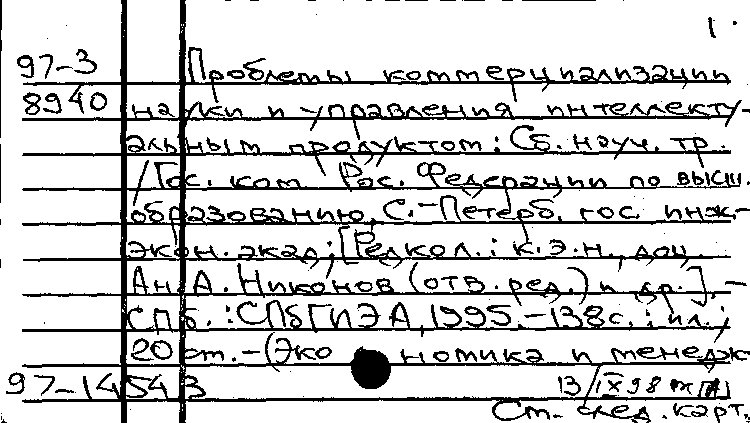 1.
97-3 Проблемы коммерциализации
8940 науки и управления интеллекту-
альным продуктом: Сб. науч. тр.
/Гос. ком. Рос. Федерации по высш.
образованию, С.-Петерб. гос. инж.-
экон. акад.; [Редкол.: к.э.н., доц.
Ан.А. Никонов (отв. ред.) и др.]. -
СПб.: СПбГИЭА, 1995. - 138с.: ил.;
20 см. - (Экономика и менедж-
97-14543 13/IX 98
См. след. карт.